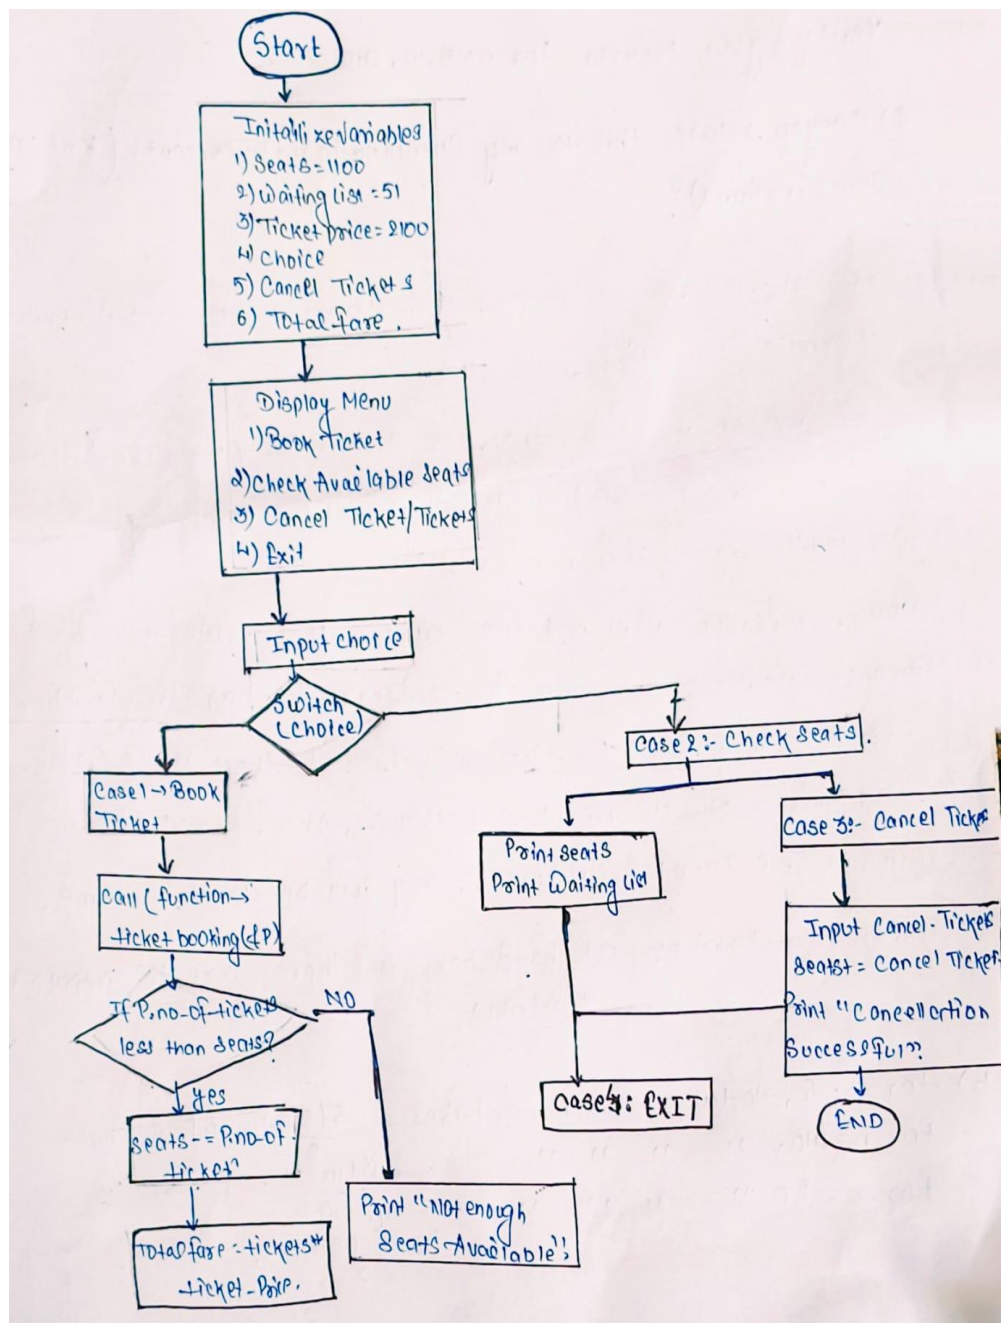 Start
Initali ze Variables
1) Seats = 1100
2) Waiting List = 51
3) Ticket price = 2100
4) Choice
5) Cancel Tickets
6) Total fare.
Display Menu
1) Book Ticket
2) Check Available Seats
3) Cancel Ticket/Tickets
4) Exit
Input choice
Switch
(choice)
Case1 → Book
Ticket
Call (function →
ticket booking(&P)
If P.no-of-tickets
less than seats?
NO
yes
Seats -= P.no-of-
ticket
Total fare = tickets *
ticket-Price.
Print "Not enough
Seats Available";
Case 2:- Check Seats.
Print seats
Print Waiting List
Case 3:- Cancel Ticket
Input Cancel-Tickets
Seats+= Cancel Ticket.
Print "Cancellation
Successful"
Case 4: EXIT
END